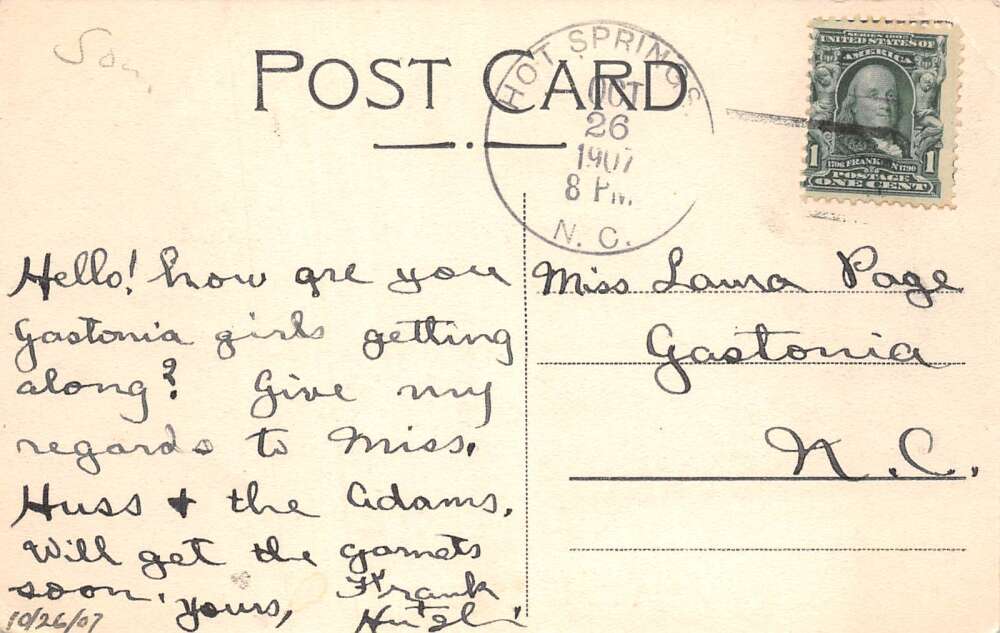 POST CARD
HOT SPRINGS.
OCT
26
1907
8 PM.
N. C.
SERIES 1902
UNITED STATES OF
AMERICA
1706 FRANKLIN 1790
1 POSTAGE 1
ONE CENT
Hello! how are you
Gastonia girls getting
along? Give my
regards to Miss.
Huss + the Adams.
Will get the garnets
soon.
yours, Frank
10/26/07
Miss Laura Page
Gastonia
N. C.